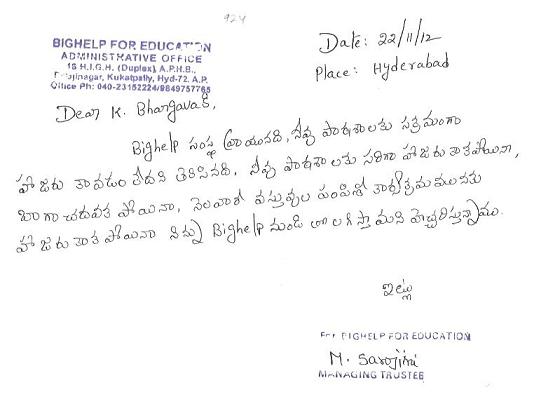 924
BIGHELP FOR EDUCATION
ADMINISTRATIVE OFFICE
18 H.I.G.H. (Duplex) A.P.H.B.,
Balajinagar, Kukatpally, Hyd-72, A.P.
Office Ph: 040-23152224/9849757765
Date: 22/11/12
Place: Hyderabad
Dear K. Bhargavaki,
Bighelp సంస్థ వ్రాయునది, నీవు పాఠశాలకు సక్రమంగా
హాజరు కావడం లేదని తెలిసినది. నీవు పాఠశాలకు సరిగా హాజరు కాకపోయినా,
బాగా చదువక పోయినా, నెలవారీ వస్తువుల పంపిణీ కార్యక్రమమునకు
హాజరు కాక పోయినా నిన్ను Bighelp నుండి తొలగిస్తామని హెచ్చరిస్తున్నాము.
ఇట్లు
For BIGHELP FOR EDUCATION
M. Sarojini
MANAGING TRUSTEE